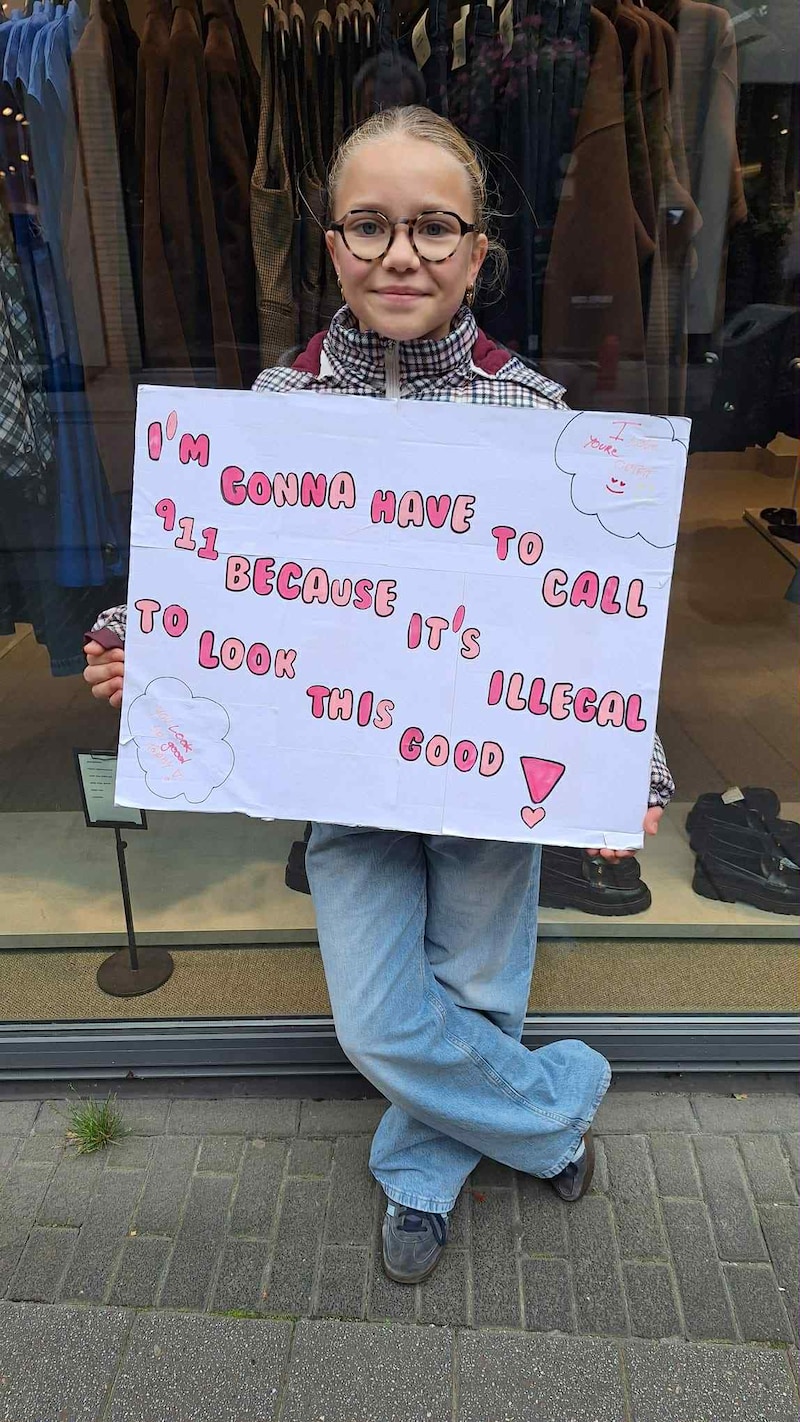 I'M GONNA HAVE TO CALL
911 BECAUSE IT'S ILLEGAL
TO LOOK THIS GOOD!
I
YOU'RE
YOU LOOK
good